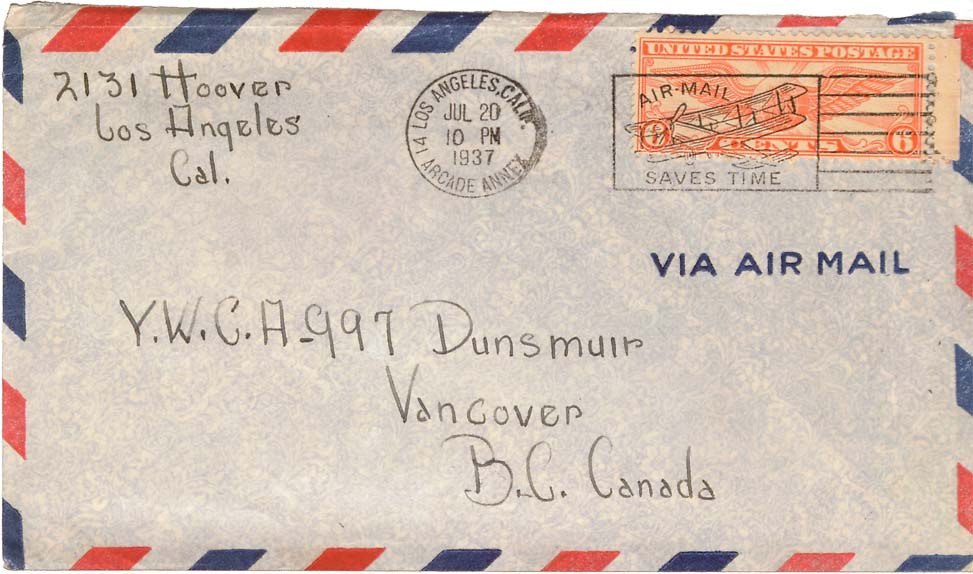 2131 Hoover
Los Angeles
Cal.
LOS ANGELES, CALIF.
JUL 20
10 PM
1937
14 ARCADE ANNEX
UNITED STATES POSTAGE
AIR-MAIL
6 CENTS 6
SAVES TIME
VIA AIR MAIL
Y.W.C.A-997 Dunsmuir
Vancover
B.C. Canada